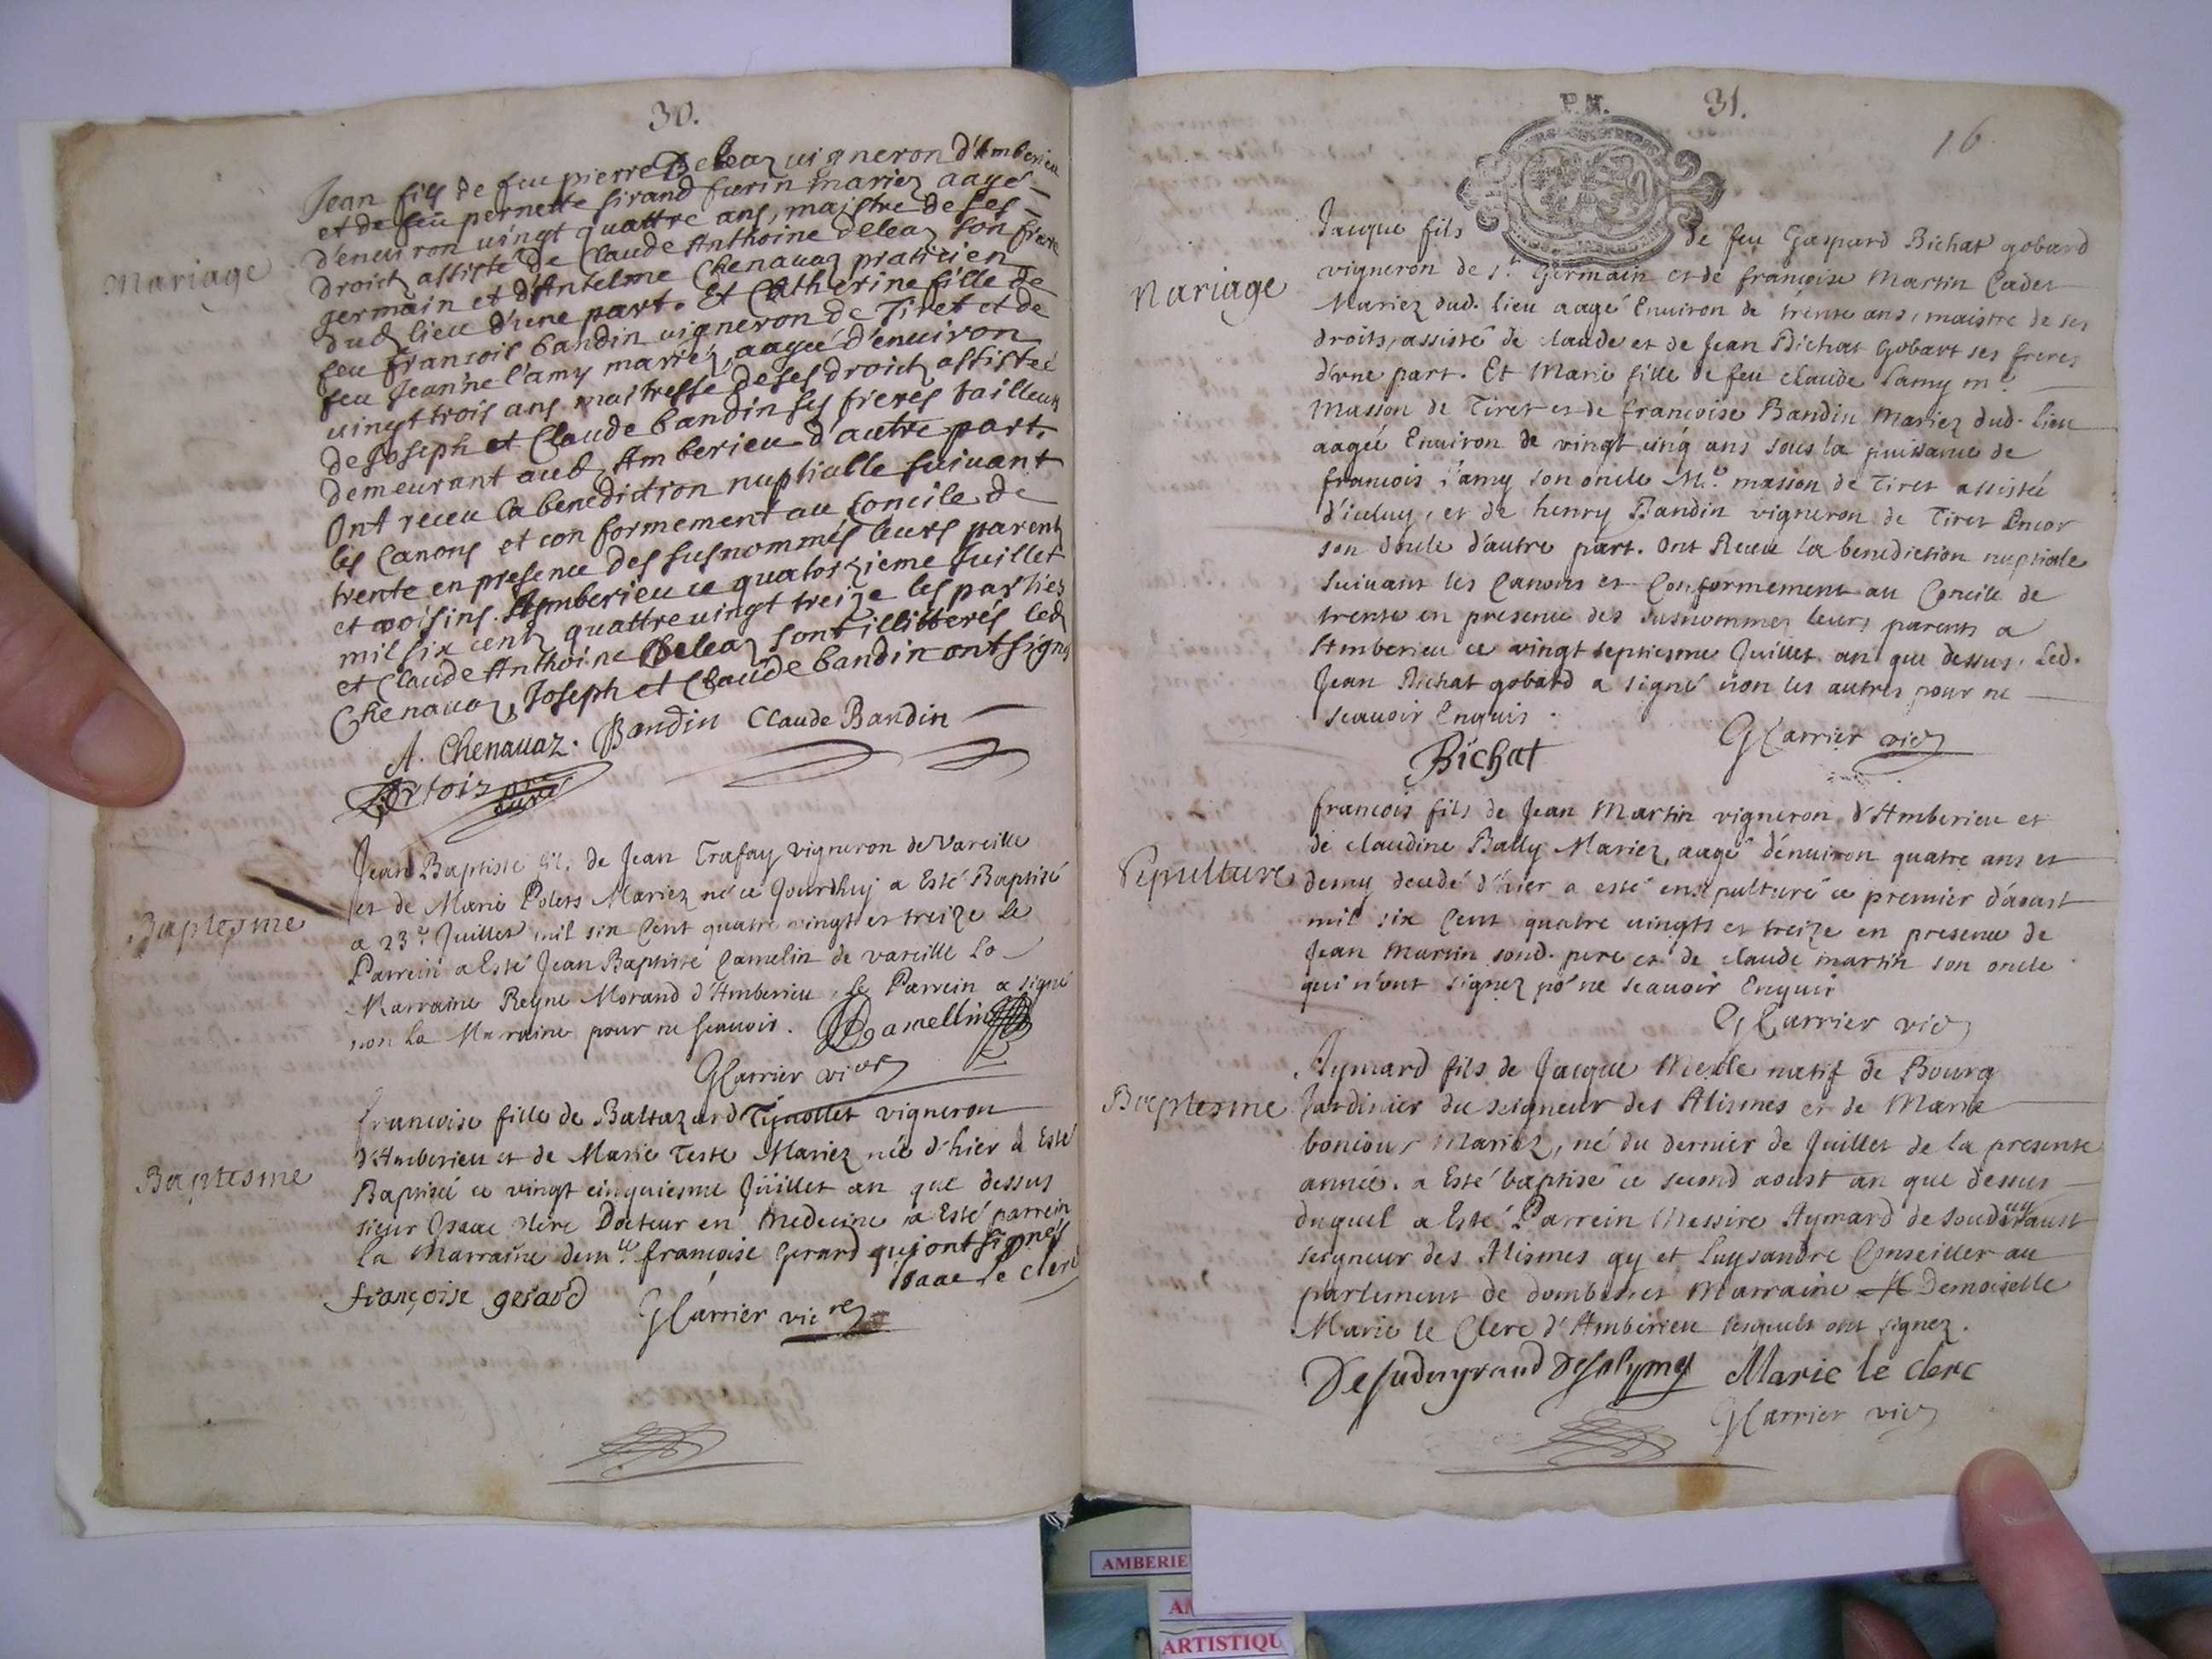 30.
Mariage
Jean fils de feu pierre Beleaz uigneron d'Amberieu
et de feu pernette sirand furin mariez aagé
d'enuiron uingt quattre ans, maistre de ses
droictz assisté de Claude Anthoine beleaz son frere
germain et d'Antelme Chenauaz praticien
dud lieu d'une part. Et Catherine fille de
feu francois bandin uigneron de Tiret et de
feu Jeanne l'amy mariéz, aagée d'enuiron
uingt trois ans maitresse de ses droictz assistée
de Joseph et Claude bandin ses freres tailleurs
demeurant aud Amberieu d'autre part.
Ont receu la benediction nuptialle suiuant
les Canons et conformement au Concile de
trente en presence des susnommés leurs parents
et voisins. Amberieu ce quatorzieme Juillet
mil six centz quattre uingt treize les parties
et Claude Anthoine Beleaz sont illitterés led
Chenauaz, Joseph et Claude bandin ont signé
A. Chenauaz. Bandin Claude Bandin
curé
Baptesme
Jean Baptiste fils de Jean Trafay vigneron de Vareille
et de Marie Polets Mariez né ce Jourdhuy a Esté Baptisé
a 23e Juillet mil six Cent quatre vingts et treize Le
Parrein a Esté Jean Baptiste Camelin de vareille La
Marraine Reyne Morand d'Amberieu, Le Parrein a signé
non La Marraine pour ne scauoir. Camellin
GCarrier vicre
Baptesme
francoise fille de Baltazard Tenollet vigneron
d'Amberieu et de Marie Teste Mariez née d'hier a Esté
Baptisée ce vingt cinquiesme Juillet an que dessus
sieur Isaac clerc Docteur en Medecine a Esté parrein
La Marraine demlle francoise Gerard qui ont signés
françoise gerard Isaac Le clerc
GCarrier vicre
P.N. 31.
16
Mariage
Jacque fils de feu Gaspard Bichat gobard
vigneron de st Germain et de francoise Martin Cadet
Mariez dud. lieu aagé Enuiron de trente ans, maistre de ses
droits, assisté de claude et de Jean Bichat Gobart ses freres
d'vne part. Et Marie fille de feu claude Lamy me
Masson de Tiret et de francoise Bandin Mariez dud. lieu
aagée Enuiron de vingt cinq ans sous la puissance de
francois l'amy son oncle Me masson de Tiret assistée
d'iceluy, et de henry Bandin vigneron de Tiret Encor
son oncle d'autre part. Ont Receu la benediction nuptiale
Suiuant les Canons et Conformement au Concile de
trente en presence des susnommez leurs parents a
Amberieu ce vingt septiesme Juillet an que dessus. Led.
Jean Bichat gobard a signé non les autres pour ne
scauoir Enquis.
Bichat GCarrier vic
Sepulture
francois fils de Jean Martin vigneron d'Amberieu et
de claudine Bally Mariez, aagé d'enuiron quatre ans et
demy decedé d'hier a esté ensepulturé ce premier d'aoust
mil six Cent quatre uingts et treize en presence de
Jean Martin sond. pere et de claude martin son oncle
qui n'ont signez po ne scauoir Enquis
GCarrier vic
Baptesme
Aymard fils de Jacque Merle natif de Bourg
Jardinier du seigneur des Alismes et de Marie
boniour Mariez, né du dernier de Juillet de la presente
année. a Esté baptisé ce second aoust an que dessus
duquel a Esté Parrein Messire Aymard de
seigneur des Alismes gy et Luysandre Conseiller au
parlement de dombes et Marraine Demoiselle
Marie le Clerc d'Amberieu lesquels ont signez.
Marie le clerc
GCarrier vic
AMBERIE
ARTISTIQU